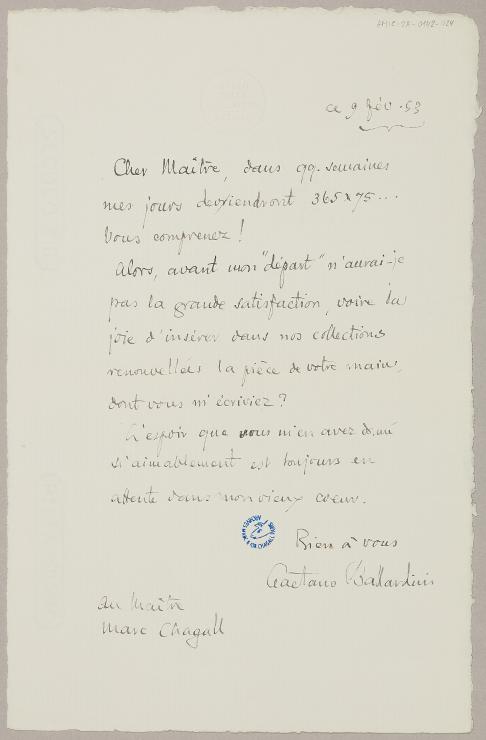 ce 9 fév. 53
Cher Maître, dans qq. semaines
mes jours deviendront 365 x 75 ...
Vous comprenez !
Alors, avant mon "départ" n'aurai-je
pas la grande satisfaction, voire la
joie d'insérer dans nos collections
renouvellées la pièce de votre main,
dont vous m'écriviez ?
L'espoir que vous m'en avez donné
si aimablement est toujours en
attente dans mon vieux coeur.
Bien à vous
Gaetano Ballardini
au Maître
Marc Chagall